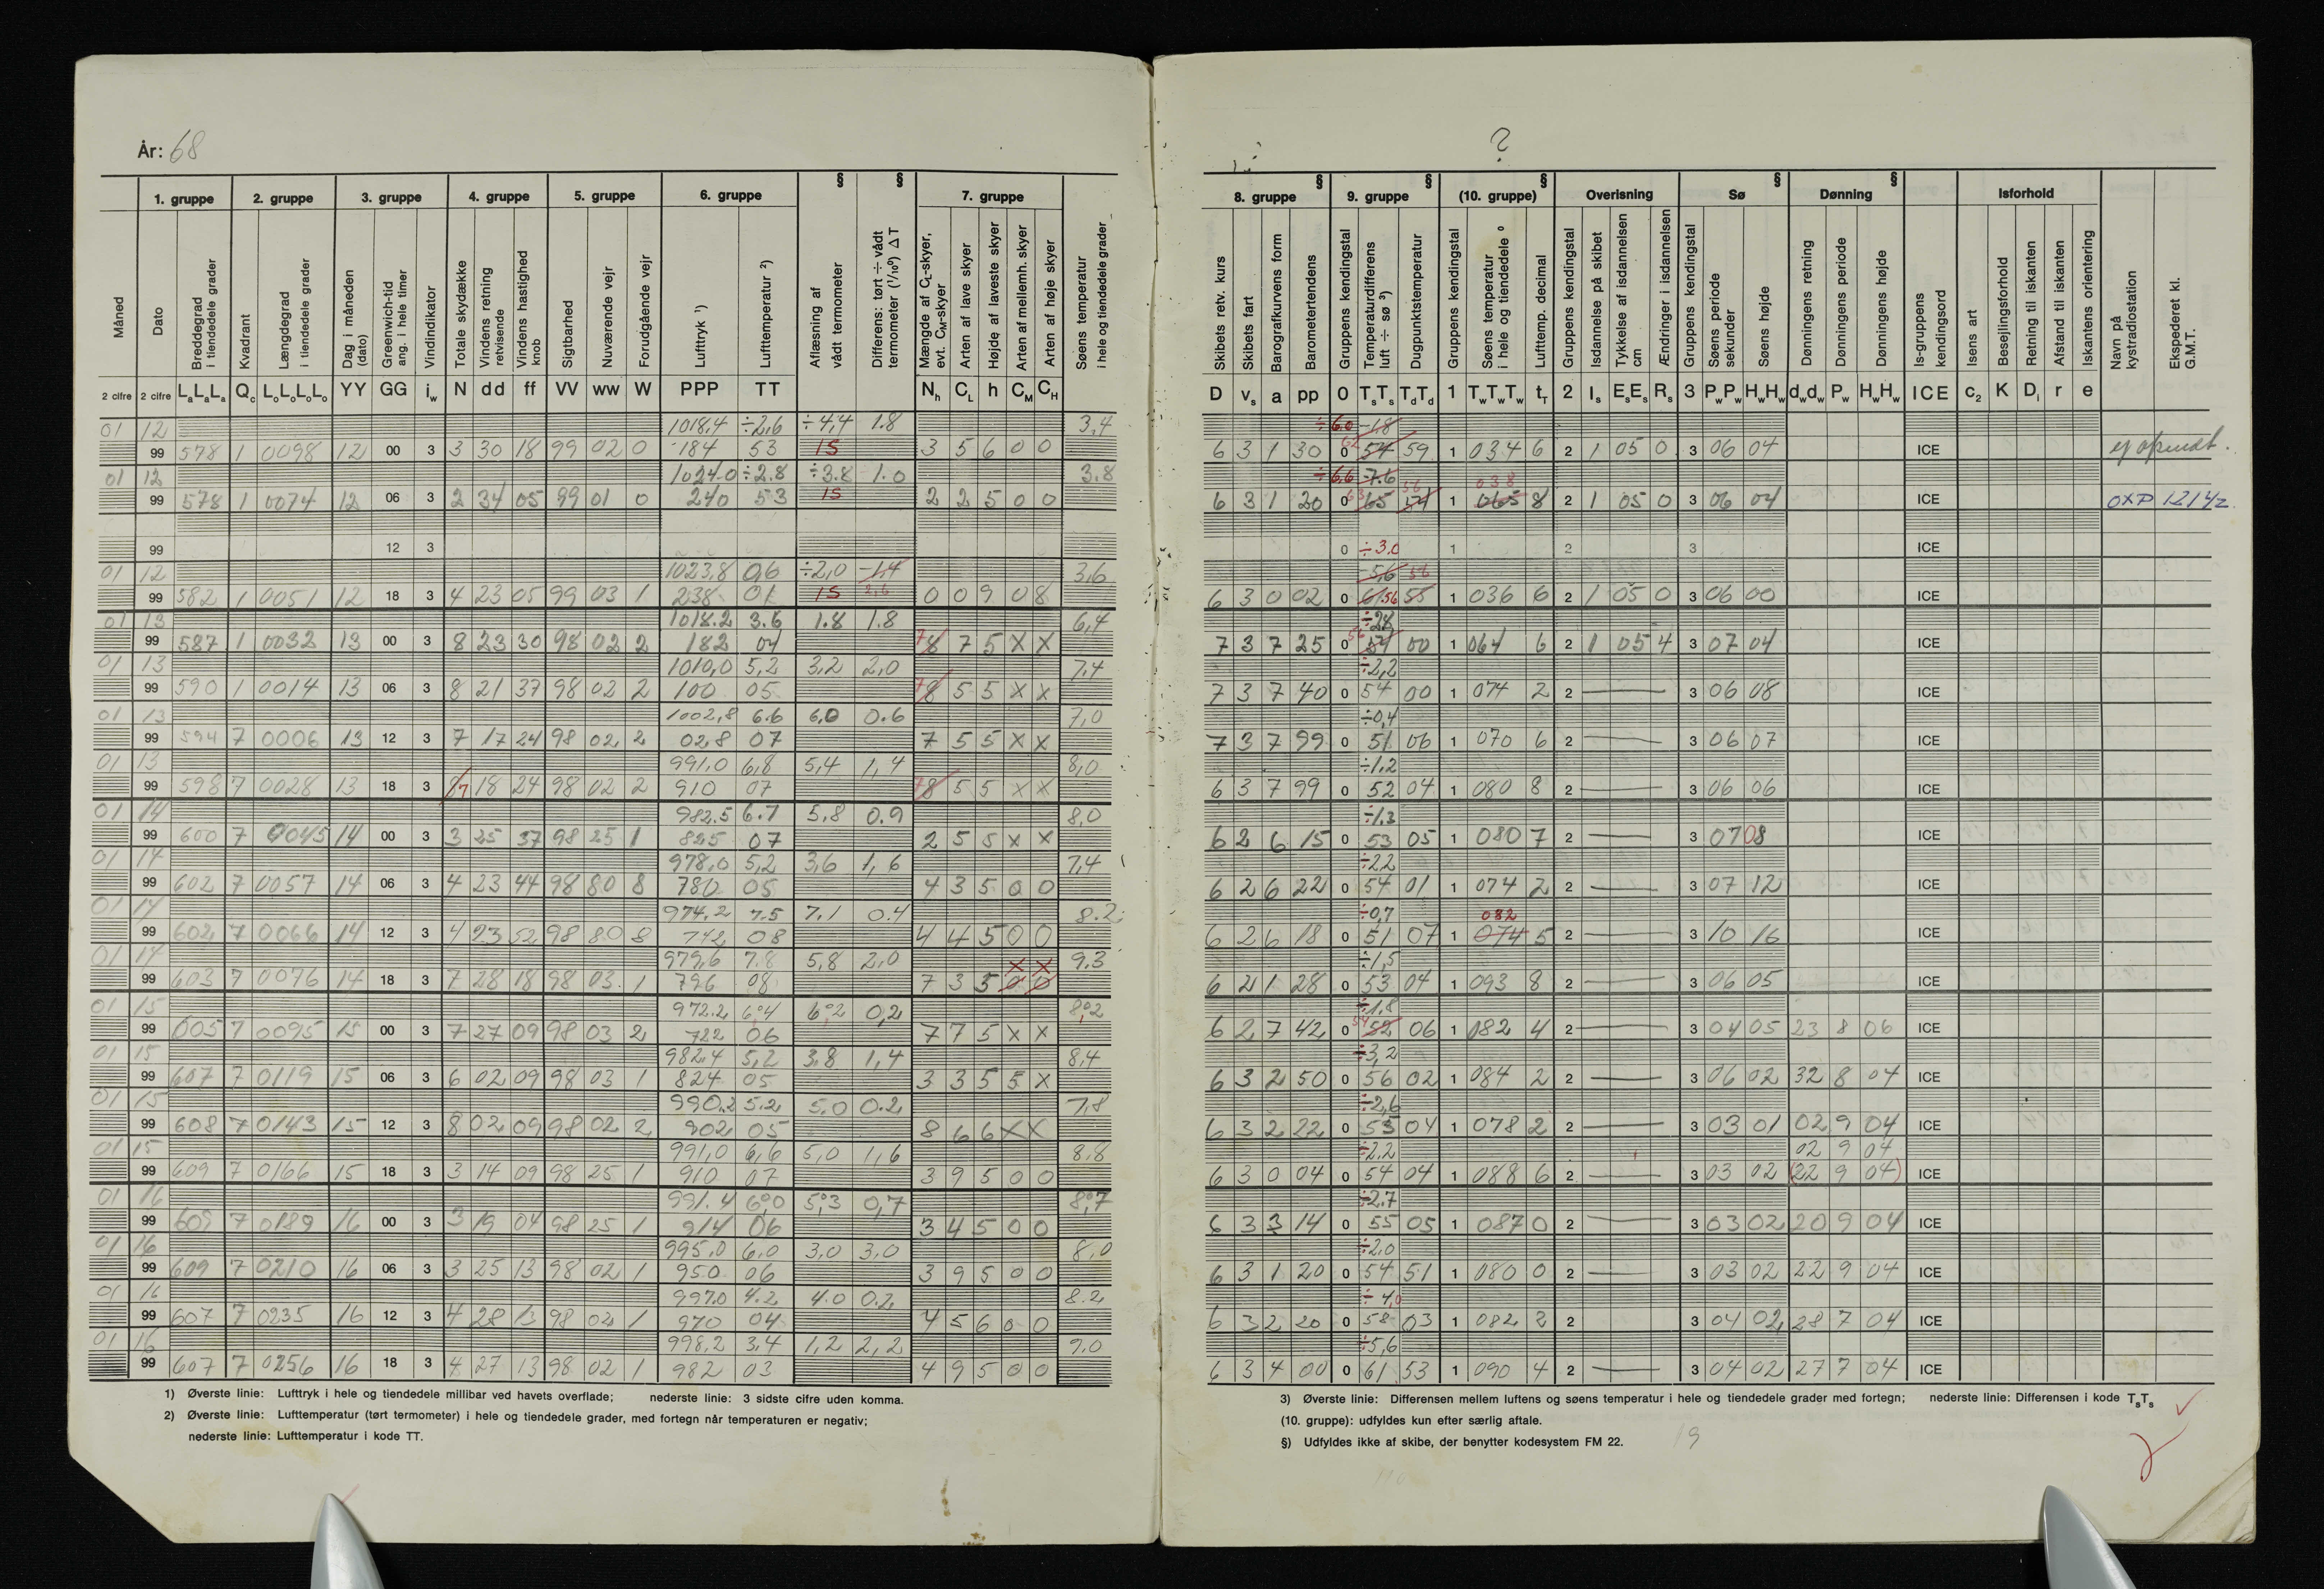 År: 68
?
1. gruppe 2. gruppe 3. gruppe 4. gruppe 5. gruppe 6. gruppe § § 7. gruppe
Måned
Dato
Breddegrad i tiendedele grader
Kvadrant
Længdegrad i tiendedele grader
Dag i måneden (dato)
Greenwich-tid ang. i hele timer
Vindindikator
Totale skydække
Vindens retning retvisende
Vindens hastighed knob
Sigtbarhed
Nuværende vejr
Forudgående vejr
Lufttryk ¹)
Lufttemperatur ²)
Aflæsning af vådt termometer
Differens: tørt ÷ vådt termometer (¹/₁₀⁰) Δ T
Mængde af CL-skyer, evt. CM-skyer
Arten af lave skyer
Højde af laveste skyer
Arten af mellemh. skyer
Arten af høje skyer
Søens temperatur i hele og tiendedele grader
2 cifre 2 cifre LaLaLa Qc LoLoLoLo YY GG iw N dd ff VV ww W PPP TT Nh CL h CM CH
01 12 1018,4 ÷2,6 ÷4,4 1.8 3,4
99 578 1 0098 12 00 3 3 30 18 99 02 0 184 53 15 3 5 6 0 0
01 12 1024.0 ÷2.8 ÷3.8 1.0 3.8
99 578 1 0074 12 06 3 2 34 05 99 01 0 240 53 15 2 2 5 0 0
99 12 3
01 12 1023,8 0,6 ÷2,0 -1,4 3,6
99 582 1 0051 12 18 3 4 23 05 99 03 1 238 01 15 2,6 0 0 9 0 8
01 13 1018.2 3.6 1.8 1.8 6,4
99 587 1 0032 13 00 3 8 23 30 98 02 2 182 04 7 8 7 5 X X
01 13 1010,0 5,2 3,2 2,0 7.4
99 590 1 0014 13 06 3 8 21 37 98 02 2 100 05 7 8 5 5 X X
01 13 1002,8 6.6 6,0 0.6 7,0
99 594 7 0006 13 12 3 7 17 24 98 02 2 028 07 7 5 5 X X
01 13 991.0 6,8 5,4 1,4 8,0
99 598 7 0028 13 18 3 7 18 24 98 02 2 910 07 7 8 5 5 X X
01 14 982.5 6.7 5,8 0.9 8,0
99 600 7 0045 14 00 3 3 25 37 98 25 1 825 07 2 5 5 X X
01 14 978,0 5,2 3,6 1,6 7,4
99 602 7 0057 14 06 3 4 23 44 98 80 8 780 05 4 3 5 0 0
01 14 974,2 7.5 7,1 0.4 8.2
99 602 7 0066 14 12 3 4 23 52 98 80 8 742 08 4 4 5 0 0
01 14 979,6 7.8 5,8 2,0 X X 9.3
99 603 7 0076 14 18 3 7 28 18 98 03 1 796 08 7 3 5 0 0
01 15 972.2 6°4 6°2 0,2 8°2
99 605 7 0095 15 00 3 7 27 09 98 03 2 722 06 7 7 5 X X
01 15 982,4 5,2 3,8 1,4 8,4
99 607 7 0119 15 06 3 6 02 09 98 03 1 824 05 3 3 5 5 X
01 15 990.2 5.2 5.0 0.2 7,8
99 608 7 0143 15 12 3 8 02 09 98 02 2 902 05 8 6 6 X X
01 15 991,0 6,6 5,0 1,6 8.8
99 609 7 0166 15 18 3 3 14 09 98 25 1 910 07 3 9 5 0 0
01 16 991.4 6°0 5°3 0,7 8°7
99 609 7 0189 16 00 3 3 19 04 98 25 1 914 06 3 4 5 0 0
01 16 995.0 6.0 3,0 3,0 8,0
99 609 7 0210 16 06 3 3 25 13 98 02 1 950 06 3 9 5 0 0
01 16 997.0 4.2 4.0 0.2 8.2
99 607 7 0235 16 12 3 4 28 13 98 02 1 970 04 4 5 6 0 0
01 16 998,2 3,4 1,2 2,2 9.0
99 607 7 0256 16 18 3 4 27 13 98 02 1 982 03 4 9 5 0 0
1) Øverste linie: Lufttryk i hele og tiendedele millibar ved havets overflade; nederste linie: 3 sidste cifre uden komma.
2) Øverste linie: Lufttemperatur (tørt termometer) i hele og tiendedele grader, med fortegn når temperaturen er negativ;
nederste linie: Lufttemperatur i kode TT.
8. gruppe § 9. gruppe § (10. gruppe) § Overisning Sø § Dønning § Isforhold
Skibets retv. kurs
Skibets fart
Barografkurvens form
Barometertendens
Gruppens kendingstal
Temperaturdifferens luft ÷ sø ³)
Dugpunktstemperatur
Gruppens kendingstal
Søens temperatur i hele og tiendedele ⁰
Lufttemp. decimal
Gruppens kendingstal
Isdannelse på skibet
Tykkelse af isdannelsen cm
Ændringer i isdannelsen
Gruppens kendingstal
Søens periode sekunder
Søens højde
Dønningens retning
Dønningens periode
Dønningens højde
Is-gruppens kendingsord
Isens art
Besejlingsforhold
Retning til iskanten
Afstand til iskanten
Iskantens orientering
Navn på kystradiostation
Ekspederet kl. G.M.T.
D vs a pp 0 TsTs TdTd 1 TwTwTw tT 2 Is EsEs Rs 3 PwPw HwHw dwdw Pw HwHw ICE c2 K Di r e
÷6.0 -1,8
6 3 1 30 0 62 54 59 1 034 6 2 1 05 0 3 06 04 ICE
÷6,6 -7.6 56 038
6 3 1 20 0 63 65 1 065 8 2 1 05 0 3 06 04 ICE OXP 1214z
0 ÷3.0 1 2 3 ICE
-5,6 56
6 3 0 02 0 56 55 1 036 6 2 1 05 0 3 06 00 ICE
÷2,8
7 3 7 25 0 56 00 1 064 6 2 1 05 4 3 07 04 ICE
÷2,2
7 3 7 40 0 54 00 1 074 2 2 — 3 06 08 ICE
÷0,4
7 3 7 99 0 51 06 1 070 6 2 — 3 06 07 ICE
÷1.2
6 3 7 99 0 52 04 1 080 8 2 — 3 06 06 ICE
÷1.3
6 2 6 15 0 53 05 1 080 7 2 — 3 07 08 ICE
÷2.2
6 2 6 22 0 54 01 1 074 2 2 — 3 07 12 ICE
÷0,7 082
6 2 6 18 0 51 07 1 074 5 2 — 3 10 16 ICE
÷1,5
6 2 1 28 0 53 04 1 093 8 2 — 3 06 05 ICE
÷1,8
6 2 7 42 0 54 52 06 1 082 4 2 — 3 04 05 23 8 06 ICE
÷3,2
6 3 2 50 0 56 02 1 084 2 2 — 3 06 02 32 8 04 ICE
÷2,6
6 3 2 22 0 55 04 1 078 2 2 — 3 03 01 02 9 04 ICE
÷2.2 02 9 04
6 3 0 04 0 54 04 1 088 6 2 — 3 03 02 (22 9 04) ICE
÷2.7
6 3 3 14 0 55 05 1 087 0 2 — 3 03 02 20 9 04 ICE
÷2,0
6 3 1 20 0 54 51 1 080 0 2 — 3 03 02 22 9 04 ICE
÷4,0
6 3 2 20 0 58 03 1 082 2 2 3 04 02 28 7 04 ICE
÷5,6
6 3 4 00 0 61 53 1 090 4 2 — 3 04 02 27 7 04 ICE
3) Øverste linie: Differensen mellem luftens og søens temperatur i hele og tiendedele grader med fortegn; nederste linie: Differensen i kode TsTs
(10. gruppe): udfyldes kun efter særlig aftale.
§) Udfyldes ikke af skibe, der benytter kodesystem FM 22.
19